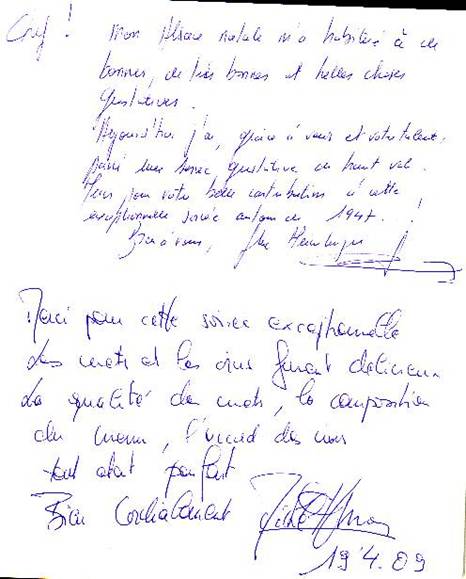 Chef ! Mon Alsace natale m'a habitué à de
bonnes, de très bonnes et belles choses
gustatives.
Aujourd'hui j'ai, grâce à vous et votre talent,
passé une soirée gustative de haut vol.
pour votre belle contribution à cette
exceptionnelle soirée autour de 1947. !
Bien à vous,
Merci pour cette soirée exceptionnelle
Les mets et les vins furent délicieux
La qualité des mets, la composition
du menu, l'accord des vins
tout était parfait
Bien Cordialement
19.4.09